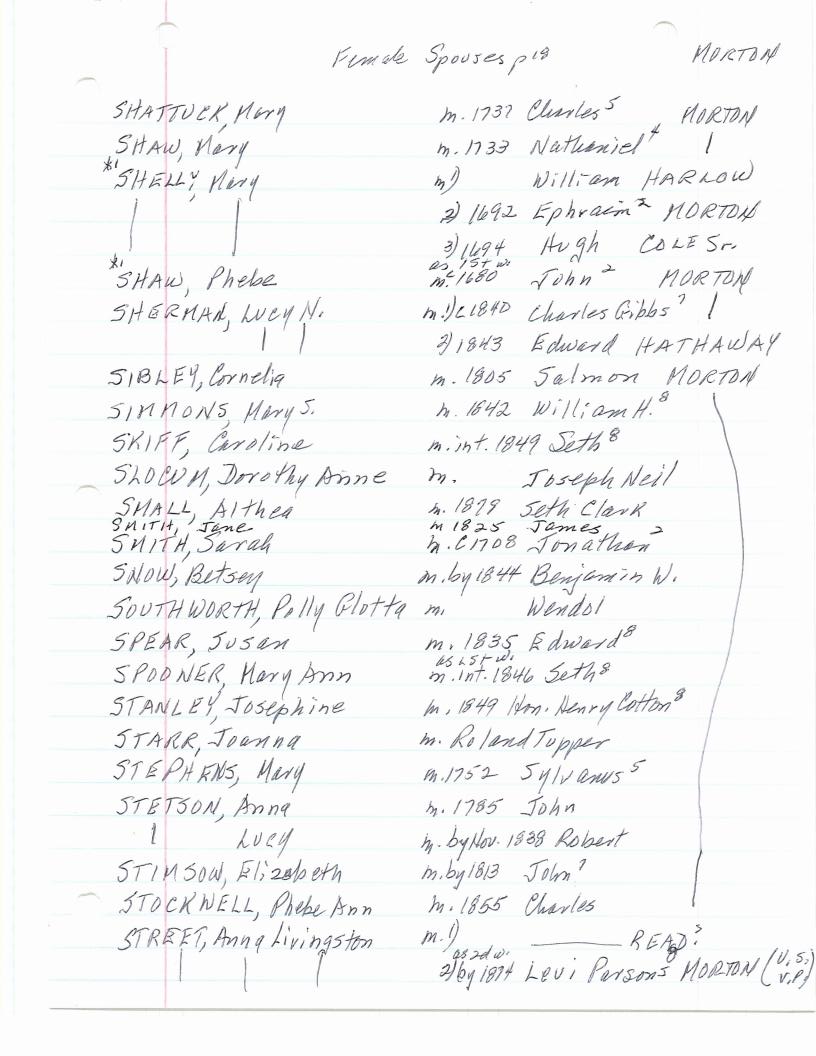 Female Spouses p18 MORTON
SHATTUCK, Mary m. 1737 Charles⁵ MORTON
SHAW, Mary m. 1733 Nathaniel⁴ |
*¹ SHELLY, Mary m¹) William HARLOW
| | 2) 1692 Ephraim² MORTON
3) 1694 Hugh COLE Sr.
as 1st w.
*¹ SHAW, Phebe m. c1680 John² MORTON
SHERMAN, LUCY N. m.1) c1840 Charles Gibbs⁷ |
| | 2) 1843 Edward HATHAWAY
SIBLEY, Cornelia m. 1805 Salmon MORTON
SIMMONS, Mary S. m. 1842 William H.⁸
SKIFF, Caroline m. int. 1849 Seth⁸
SLOCUM, Dorothy Anne m. Joseph Neil
SMALL, Althea m. 1879 Seth Clark
SMITH, Jane m 1825 James
SMITH, Sarah m. C1708 Jonathan²
SNOW, Betsey m. by 1844 Benjamin W.
SOUTHWORTH, Polly Glotta m. Wendol
SPEAR, Susan m. 1835 Edward⁸
as 1st w.
SPOONER, Mary Ann m. int. 1846 Seth⁸
STANLEY, Josephine m. 1849 Hon. Henry Cotton⁸
STARR, Joanna m. Roland Tupper
STEPHENS, Mary m. 1752 Sylvanus⁵
STETSON, Anna m. 1785 John
| LUCY m. by Nov. 1838 Robert
STIMSOW, Elizabeth m. by 1813 John⁷
STOCKWELL, Phebe Ann m. 1855 Charles
STREET, Anna Livingston m. 1) ——— READ?
as 2d w.
| | | 2) by 1874 Levi Parsons⁸ MORTON (U.S. V.P.)